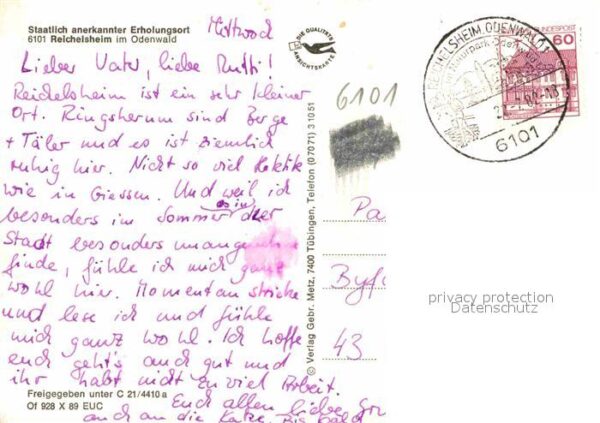 Staatlich anerkannter Erholungsort
6101 Reichelsheim im Odenwald
Mittwoch
Lieber Vater, liebe Mutti!
Reichelsheim ist ein sehr kleiner
Ort. Ringsherum sind Berge
+ Täler und es ist ziemlich
ruhig hier. Nicht so viel Hektik
wie in Giessen. Und weil ich
es in
besonders im Sommer der
Stadt besonders unangenehm
finde, fühle ich mich ganz
wohl hier. Momentan stricke
und lese ich und fühle
mich ganz wohl. Ich hoffe
euch geht's auch gut und
ihr habt nicht zu viel Arbeit.
Euch allen liebe
auch an die Katze. Bis bald
Freigegeben unter C 21/4410 a
Of 928 X 89 EUC
© Verlag Gebr. Metz, 7400 Tübingen, Telefon (07071) 31051
DIE QUALITÄTS
ANSICHTSKARTE
6101
REICHELSHEIM, ODENWALD
6101
BUNDESPOST
60
Pa
Byf
43
privacy protection
Datenschutz